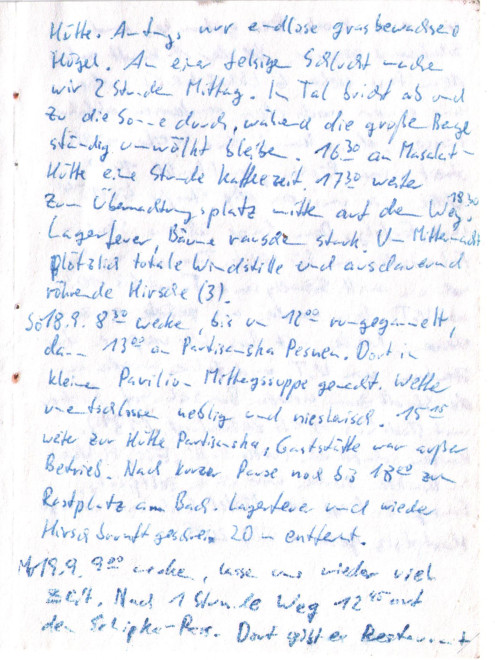 Hütte. Anfangs nur endlose grasbewachsene
Hügel. An einer felsigen Schlucht machen
wir 2 Stunden Mittag. Im Tal bricht ab und
zu die Sonne durch, während die großen Berge
ständig umwölkt bleiben. 16³⁰ an Masalat-
Hütte eine Stunde Kaffezeit. 17³⁰ weiter
zum Übernachtungsplatz mitten auf dem Weg. 18³⁰
Lagerfeuer, Bäume rauschen stark. Um Mitternacht
plötzlich totale Windstille und andauernd
röhrende Hirsche (3).
So 18.9. 8³⁰ wecken, bis um 12⁰⁰ rumgegammelt,
dann 13⁰⁰ an Partisanska Pesnen. Dort in
kleinem Pavilion Mittagssuppe gemacht. Wetter
unentschlossen neblig und nieslerisch. 15¹⁵
weiter zur Hütte Partisanska, Gaststätte war außer
Betrieb. Nach kurzer Pause noch bis 18⁰⁰ zum
Rastplatz am Bach. Lagerfeuer und wieder
Hirschbrunftgeschrei 20 m entfernt.
Mo 19.9. 9⁰⁰ wecken, lassen uns wieder viel
Zeit. Nach 1 Stunde Weg 12⁴⁵ auf
dem Schipka-Pass. Dort gibt es Restaurant